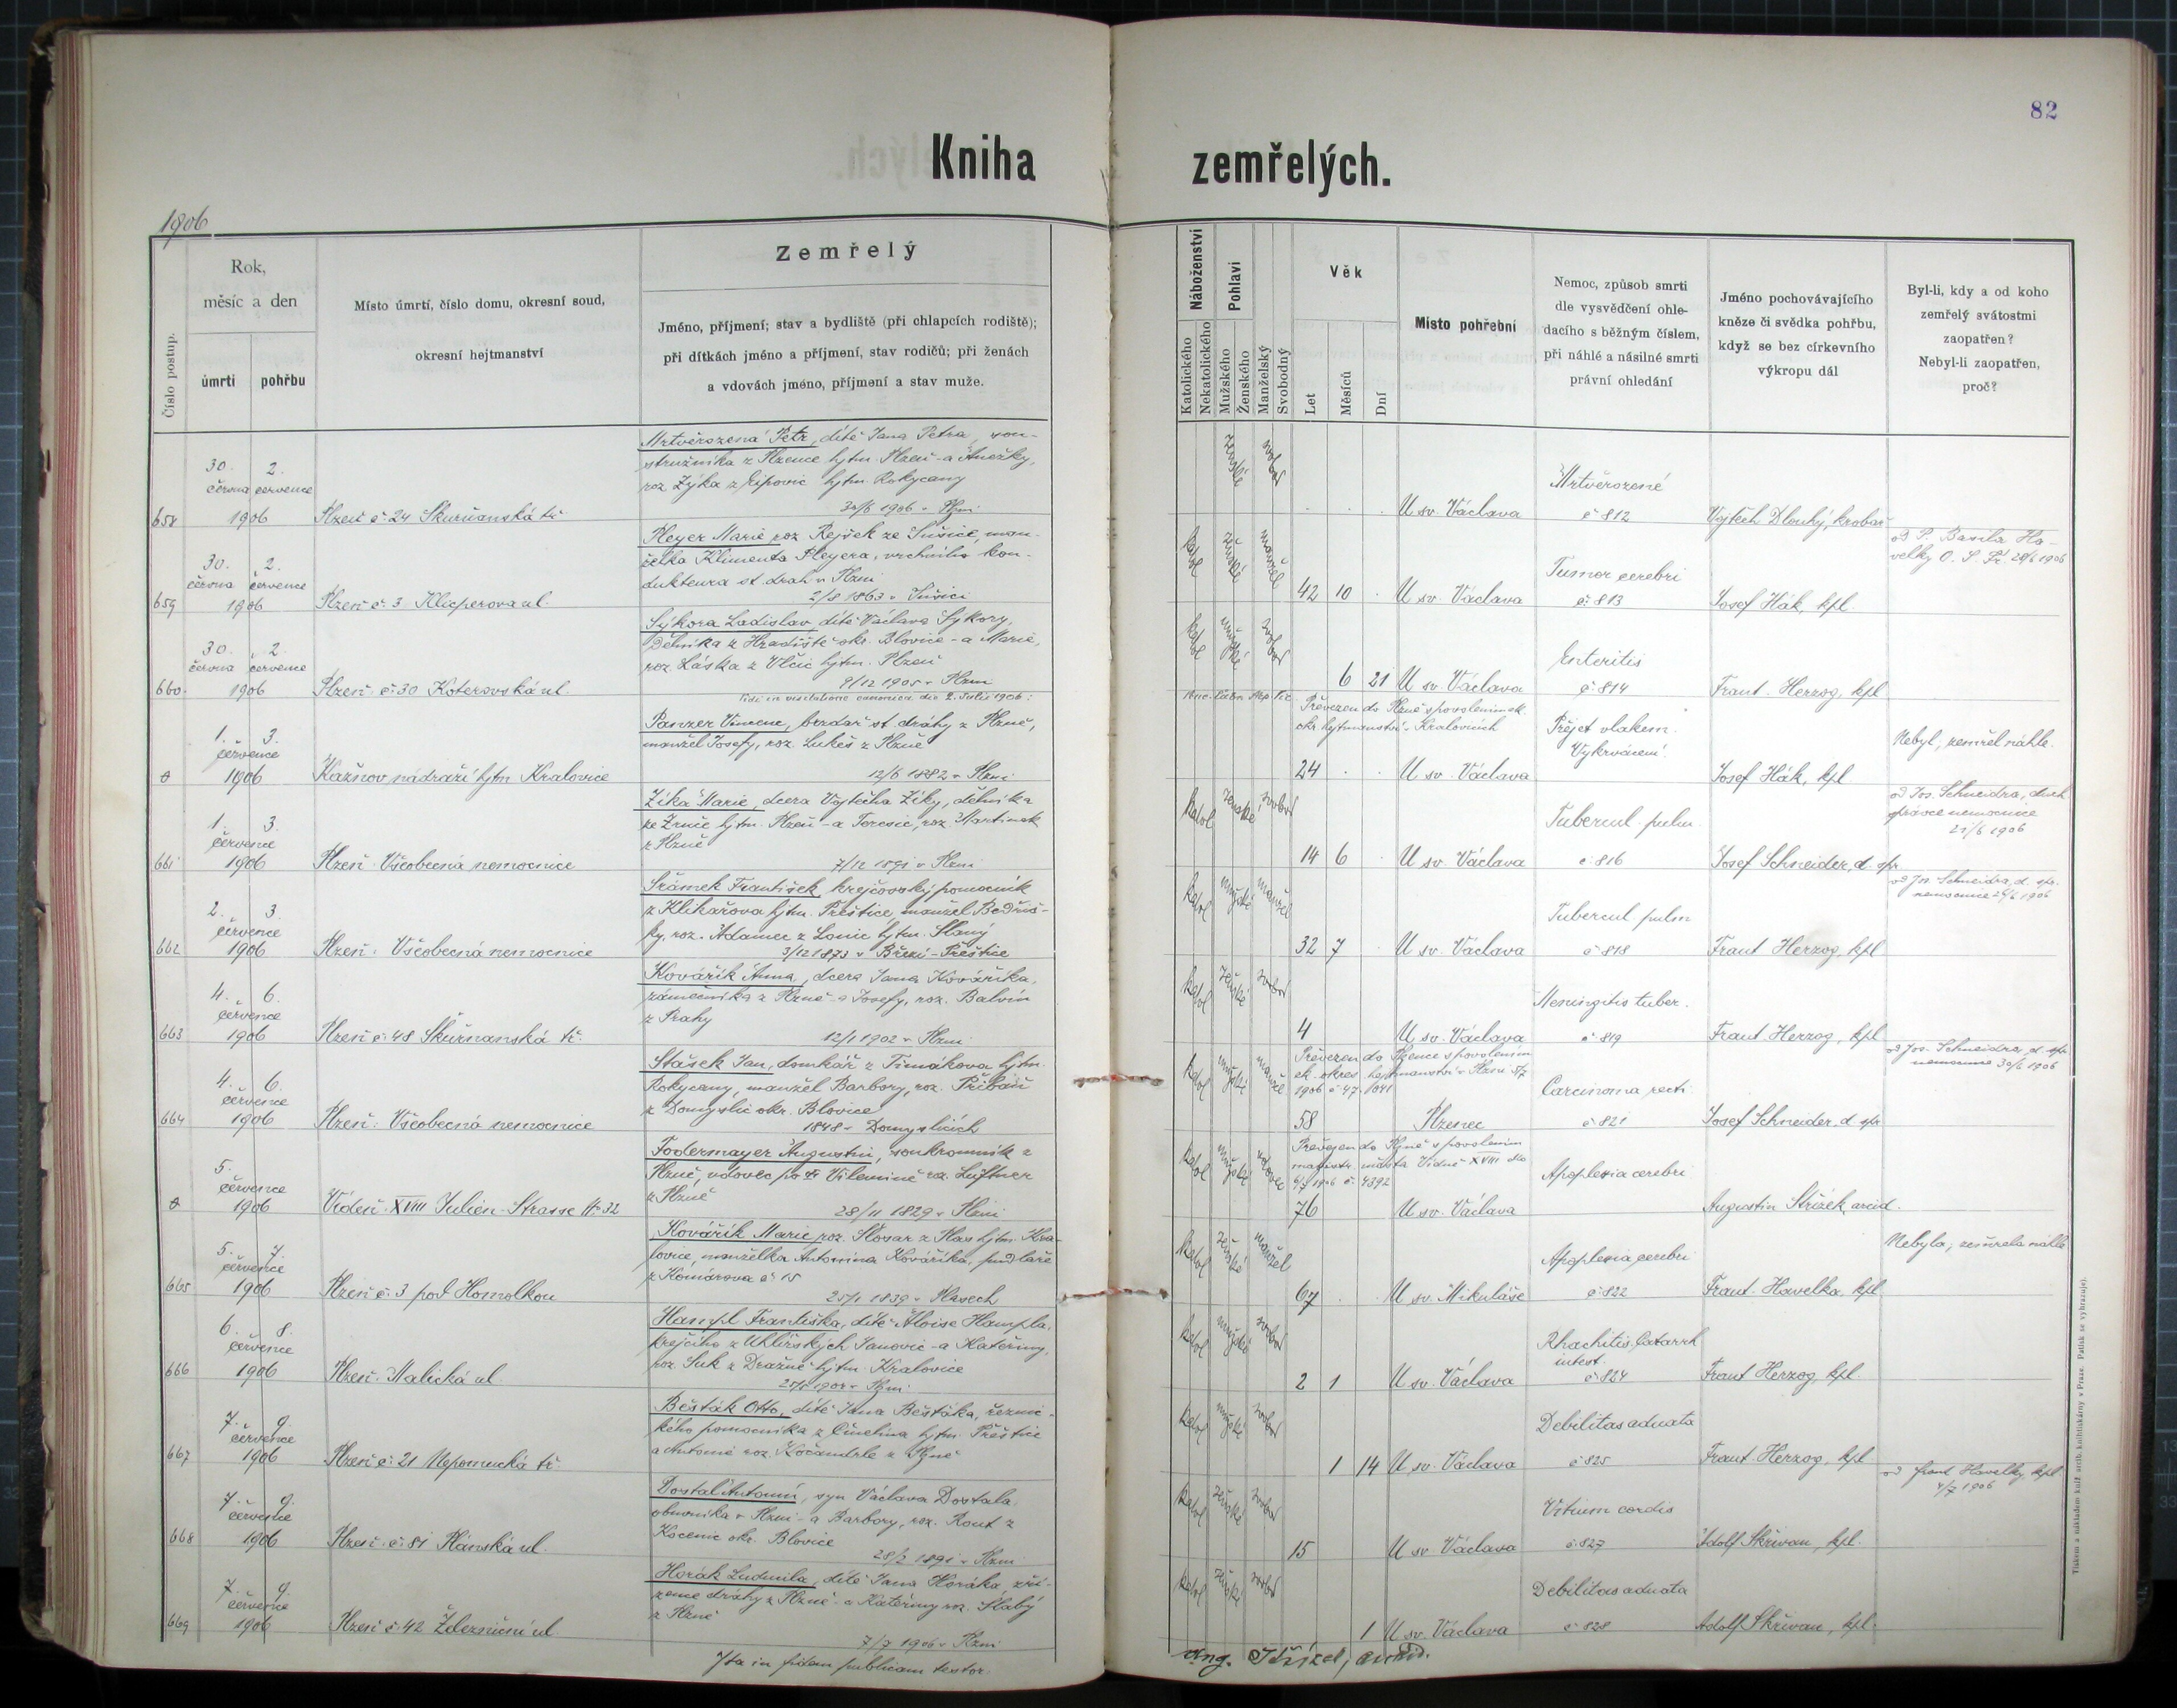 82
Kniha zemřelých.
1906
Číslo postup.
Rok,
měsíc a den
úmrtí
pohřbu
Místo úmrtí, číslo domu, okresní soud,
okresní hejtmanství
Zemřelý
Jméno, příjmení; stav a bydliště (při chlapcích rodiště);
při dítkách jméno a příjmení, stav rodičů; při ženách
a vdovách jméno, příjmení a stav muže.
Náboženství
Katolického
Nekatolického
Pohlaví
Mužského
Ženského
Manželský
Svobodný
Věk
Let
Měsíců
Dní
Místo pohřební
Nemoc, způsob smrti
dle vysvědčení ohle-
dacího s běžným číslem,
při náhlé a násilné smrti
právní ohledání
Jméno pochovávajícího
kněze či svědka pohřbu,
když se bez církevního
výkropu dál
Byl-li, kdy a od koho
zemřelý svátostmi
zaopatřen?
Nebyl-li zaopatřen,
proč?
658
30. 2.
června července
1906
Plzeň č. 24 Skurňanská tř.
Mrtvěrozená Petr, dítě Jana Petra, sou-
stružníka z Plzence hjtm. Plzeň - a Anežky,
roz. Zýka z Ejpovic hjtm. Rokycany
30/6 1906 v Plzni
ženské
svobod
U sv. Václava
Mrtvěrozené
č 812
Vojtěch Dlouhý, hrobař
659
30. 2.
června července
1906
Plzeň č. 3 Klicperova ul.
Pleyer Marie roz. Rejšek ze Sušice, man-
želka Klimenta Pleyera, vrchního kon-
dukteura st. drah v Plzni
2/8 1863 v Sušici
katol
ženské
manžel
42 10 .
U sv. Václava
Tumor cerebri
č. 813
Josef Hák, kpl.
od P. Basila Ha-
velky O. S. Fr. 28/6 1906
660.
30. 2.
června července
1906
Plzeň č. 30 Koterovská ul.
Sýkora Ladislav, dítě Václava Sýkory,
dělníka z Hradiště okr. Blovice - a Marie,
roz. Láska z Vlčic hjtm. Plzeň
9/12 1905 v Plzni
katol
mužské
svobod
6 21
U sv. Václava
Enteritis
č. 814
Frant. Herzog, kpl
Vidi in visitatione canonica die 2. Julii 1906:
1. 3.
července
1906
Kaznov nádraží hjtm Kralovice
Panzer Vincenc, brzdař st. dráhy z Plzně,
manžel Josefy, roz. Lukeš z Plzně
12/6 1882 v Plzni
Převezen do Plzně s povolením ck.
okr. hejtmanství v Kralovicích
24 . .
U sv. Václava
Přejet vlakem.
Vykrvácení.
Josef Hák, kpl
Nebyl, zemřel náhle.
661
1. 3.
července
1906
Plzeň: Všeobecná nemocnice
Zíka Marie, dcera Vojtěcha Zíky, dělníka
ze Zruče hjtm. Plzeň - a Terezie, roz. Martínek
z Plzně
7/12 1891 v Plzni
katol
ženské
svobod
14 6 .
U sv. Václava
Tubercul. pulm.
č 816
Josef Schneider, d. spr.
od Jos. Schneidra, duch
správce nemocnice
21/6 1906
662
2. 3.
července
1906
Plzeň: Všeobecná nemocnice
Šrámek František, krejčovský pomocník
z Klikařova hjtm. Přeštice, manžel Bedřiš-
ky, roz. Adamec z Lonic hjtm. Slaný
3/12 1873 v Březí - Přeštice
katol
mužské
manžel
32 7 .
U sv. Václava
Tubercul pulm
č 818
Frant Herzog, kpl
od Jos. Schneidra, d. spr.
nemocnice 26/6 1906
663
4. 6.
července
1906
Plzeň č. 48 Skurňanská tř.
Kovářík Anna, dcera Jana Kováříka,
zámečníka z Plzně - a Josefy, roz. Balvín
z Prahy
12/1 1902 v Plzni
katol
ženské
svobod
4
U sv. Václava
Meningitis tuber.
č 819
Frant. Herzog, kpl
664
4. 6.
července
1906
Plzeň: Všeobecná nemocnice
Stašek Jan, domkář z Timákova hjtm.
Rokycany, manžel Barbory, roz. Přibáň
z Domyslic okr. Blovice
1848 v Domyslicích
katol
mužské
manžel
Převezen do Plzence s povolením
ck. okres. hejtmanství v Plzni 5/7
1906 č 47.1041
58
Plzenec
Carcinoma recti
č 821
Josef Schneider, d spr
od Jos. Schneidra, d. spr.
nemocnice 30/6 1906
5.
července
1906
Vídeň XVIII Julien-Strasse No 32
Fodermayer Augustin, soukromník z
Plzně, vdovec po Vilemíně roz. Luftner
z Plzně
28/11 1829 v Plzni
katol
mužské
vdovec
Převezen do Plzně s povolením
magistr. města Vídně XVIII dto
6/7 1906 č. 4392
76
U sv. Václava
Apoplexia cerebri
Augustin Střížek, arcid.
665
5. 7.
července
1906
Plzeň č. 3 pod Homolkou
Kovářík Marie, roz. Slosar z Plas hjtm. Kra-
lovice, manželka Antonína Kováříka, pudlaře
z Komárova č. 15
25/1 1839 v Plasech
katol
ženské
manžel
67 . .
U sv. Mikuláše
Apoplexia cerebri
č 822
Frant. Havelka, kpl
Nebyla, zemřela náhle
666
6. 8.
července
1906
Plzeň: Malická ul
Hampl Františka, dítě Aloise Hampla,
krejčího z Uhlířských Janovic - a Kateřiny,
roz. Suk z Dražně hjtm. Kralovice
v Plzni
katol
mužské
svobod
2 1
U sv. Václava
Rhachitis. Catarrh
intest.
č 824
Frant Herzog, kpl.
667
7. 9.
července
1906
Plzeň č. 21 Nepomucká tř.
Běšták Otto, dítě Jana Běštáka, řeznic-
kého pomocníka z Čmelína hjtm. Přeštice
a Antonie roz. Kočandrle z Plzně
katol
mužské
svobod
1 14
U sv. Václava
Debilitas adnata
č 825
Frant. Herzog, kpl
668
7. 9.
července
1906
Plzeň č. 81 Plánská ul.
Dostal Antonín, syn Václava Dostala,
obuvníka v Plzni - a Barbory, roz. Rout z
Kocenic okr. Blovice
28/2 1891 v Plzni
katol
svobod
15
U sv. Václava
Vitium cordis
č. 827
Adolf Skřivan, kpl.
od Frant Havelky, kpl
4/7 1906
669
7. 9.
července
1906
Plzeň č. 42 Železniční ul
Horák Ludmila, dítě Jana Horáka, zří-
zence dráhy z Plzně - a Kateřiny roz. Slabý
z Plzně
7/7 1906 v Plzni
katol
ženské
svobod
1
U sv. Václava
Debilitas adnata
č 828
Adolf Skřivan, kpl.
Ita in fidem publicam testor.
Aug. Střížek, archid.
Tiskem a nákladem kníž. arcib. knihtiskárny v Praze. Padělek se vyhrazuje.